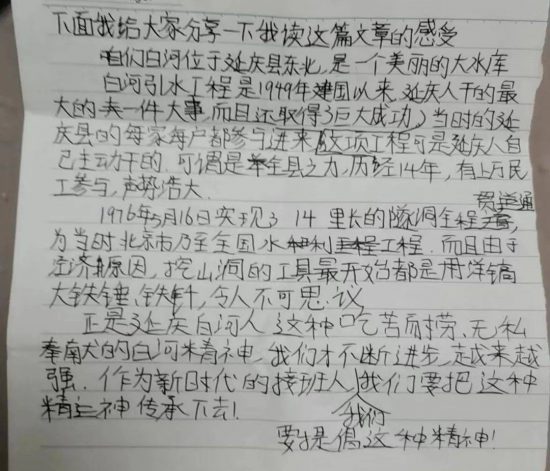 下面我给大家分享一下我读这篇文章的感受
咱们白河位于延庆县东北,是一个美丽的大水库
白河引水工程是1949年建国以来,延庆人干的最
大的一件大事,而且还取得了巨大成功,当时的延
庆县的每家每户都参与进来,这项工程可是延庆人自
己主动干的,可谓是举全县之力,历经14年,有上万民
工参与,声势浩大.
1976年5月16日实现了 14 里长的隧洞全程贯通,
为当时北京市乃至全国水利工程.而且由于
经济原因,挖山洞的工具最开始都是用洋镐
大铁锤、铁钎,令人不可思议
正是延庆白河人 这种吃苦耐劳、无私
奉献的白河精神,我们才不断进步,越来越
强.作为新时代的接班人,我们要把这种
精神传承下去!
我们
要提倡这种精神!